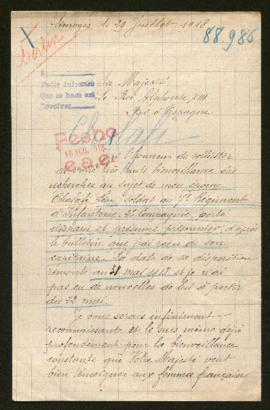 Limoges, le 29 Juillet 1918
88.986
Berlin
Sa Majesté
le Roi Alphonse XIII
Roi d'Espagne
Pedir informes
Que se hace así
Devolver
Fecho
l'honneur de solliciter
de votre très haute bienveillance des
recherches au sujet de mon
soldat au Régiment
d'Infanterie, Compagnie, porté
disparu et présumé prisonnier, d'après
le bulletin que j'ai reçu de son
capitaine. La date de sa disparition
remonte au 31 mai 1918 et je n'ai
pas eu de nouvelles de lui à partir
du 22 mai.
Je vous serais infiniment
reconnaissante et le suis même déjà
profondément pour la bienveillance
constante que Votre Majesté veut
bien témoigner aux femmes françaises